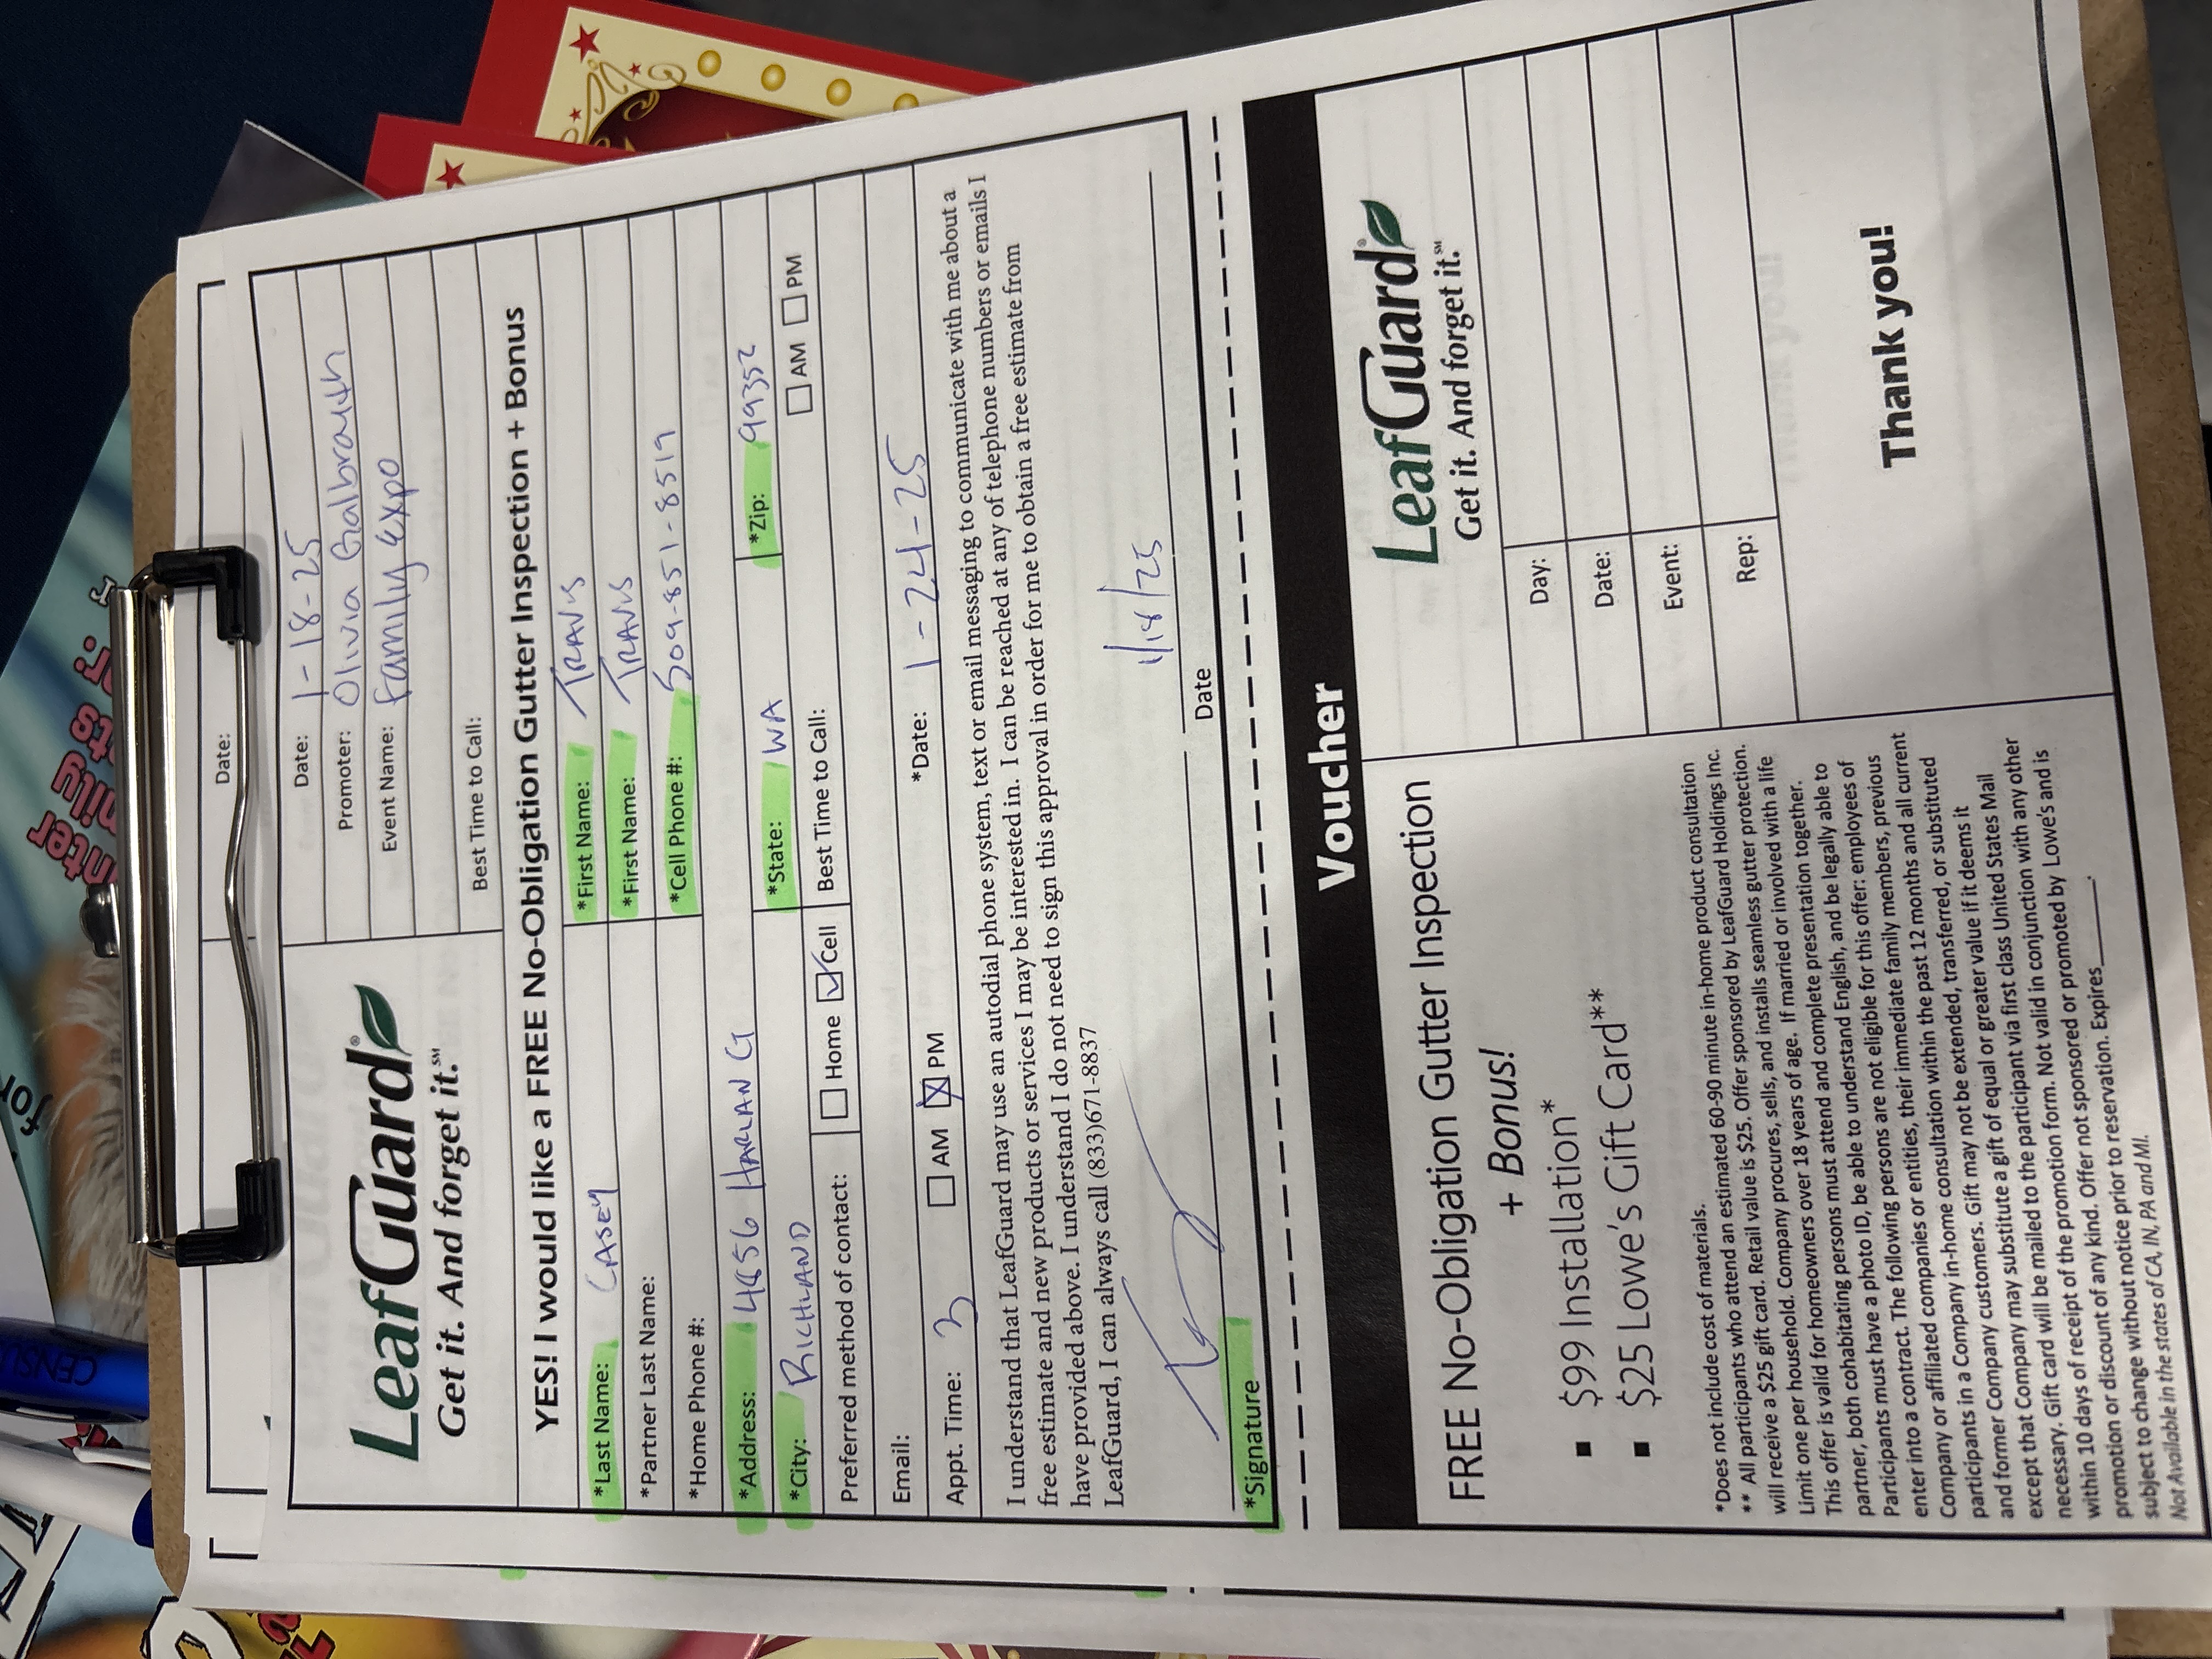 CENSU
for
nter
mily
ts
r:
r
Date:
LeafGuard®
Get it. And forget it.℠
Date: 1-18-25
Promoter: Olivia Galbraith
Event Name: Family Expo
Best Time to Call:
YES! I would like a FREE No-Obligation Gutter Inspection + Bonus
*Last Name: CASEY *First Name: TRAVIS
*Partner Last Name: *First Name: TRAVIS
*Home Phone #: *Cell Phone #: 509-851-8519
*Address: 4856 HARLAN CT
*City: RICHLAND *State: WA *Zip: 99352
Preferred method of contact: Home Cell Best Time to Call: AM PM
Email:
Appt. Time: 3 AM PM *Date: 1-24-25
I understand that LeafGuard may use an autodial phone system, text or email messaging to communicate with me about a
free estimate and new products or services I may be interested in. I can be reached at any of telephone numbers or emails I
have provided above. I understand I do not need to sign this approval in order for me to obtain a free estimate from
LeafGuard, I can always call (833)671-8837
1/18/25
*Signature Date
Voucher
FREE No-Obligation Gutter Inspection
+ Bonus!
▪ $99 Installation*
▪ $25 Lowe's Gift Card**
*Does not include cost of materials.
** All participants who attend an estimated 60-90 minute in-home product consultation
will receive a $25 gift card. Retail value is $25. Offer sponsored by LeafGuard Holdings Inc.
Limit one per household. Company procures, sells, and installs seamless gutter protection.
This offer is valid for homeowners over 18 years of age. If married or involved with a life
partner, both cohabitating persons must attend and complete presentation together.
Participants must have a photo ID, be able to understand English, and be legally able to
enter into a contract. The following persons are not eligible for this offer: employees of
Company or affiliated companies or entities, their immediate family members, previous
participants in a Company in-home consultation within the past 12 months and all current
and former Company customers. Gift may not be extended, transferred, or substituted
except that Company may substitute a gift of equal or greater value if it deems it
necessary. Gift card will be mailed to the participant via first class United States Mail
within 10 days of receipt of the promotion form. Not valid in conjunction with any other
promotion or discount of any kind. Offer not sponsored or promoted by Lowe's and is
subject to change without notice prior to reservation. Expires________.
Not Available in the states of CA, IN, PA and MI.
LeafGuard®
Get it. And forget it.℠
Day:
Date:
Event:
Rep:
Thank you!